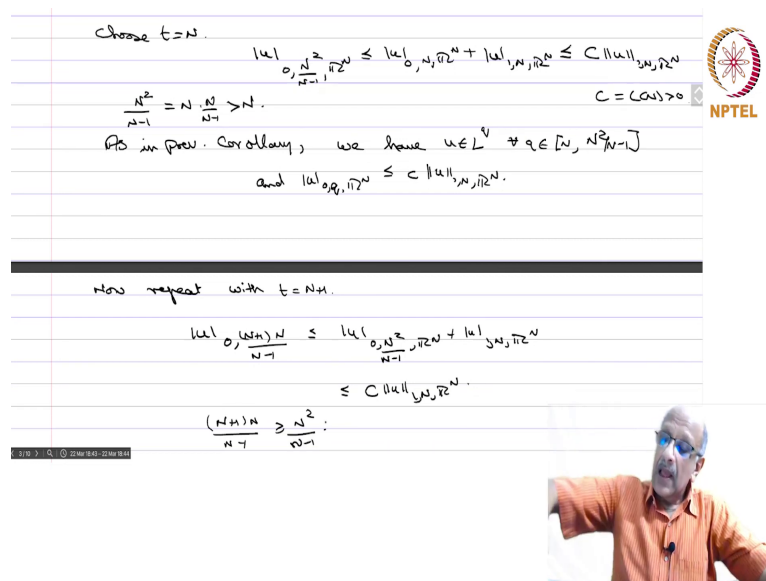 Choose t=N.
|u|_{0,N²/N-1,ℝ^N} ≤ |u|_{0,N,ℝ^N} + |u|_{1,N,ℝ^N} ≤ C‖u‖_{1,N,ℝ^N}
N²/N-1 = N·N/N-1 > N. C = C(N)>0
As in prev. Corollary, we have u∈L^q ∀ q∈[N, N²/N-1]
and |u|_{0,q,ℝ^N} ≤ C‖u‖_{1,N,ℝ^N}.
NPTEL
Now repeat with t=N+1.
|u|_{0,(N+1)N/N-1} ≤ |u|_{0,N²/N-1,ℝ^N} + |u|_{1,N,ℝ^N}
≤ C‖u‖_{1,N,ℝ^N}.
(N+1)N/N-1 ≥ N²/N-1 :
3/10 22 Mar 18:43 - 22 Mar 18:44